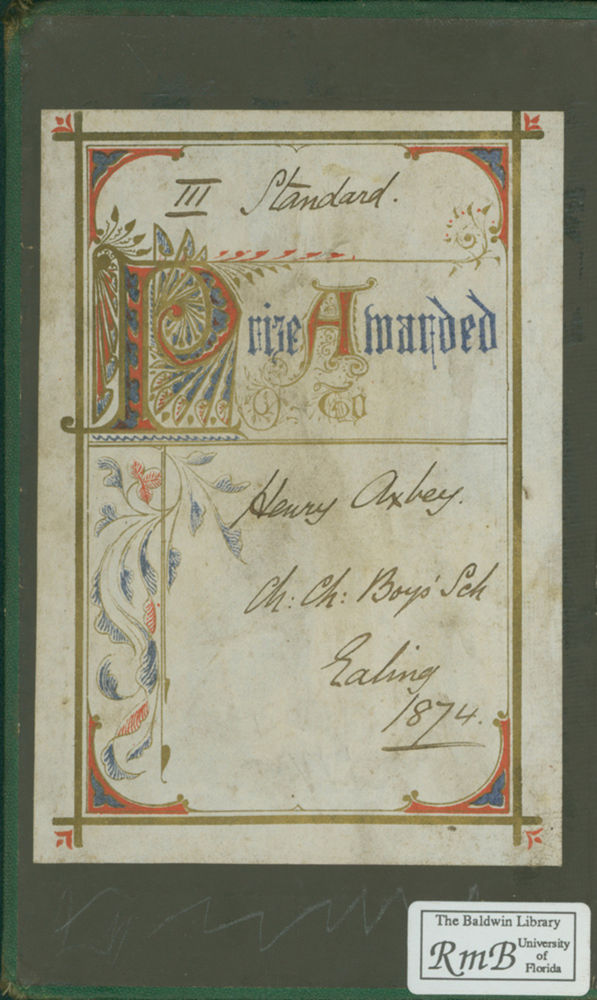 III Standard.
Prize Awarded
To
Henry Axbey.
Ch: Ch: Boys' Sch
Ealing
1874.
The Baldwin Library
RmB University
of
Florida